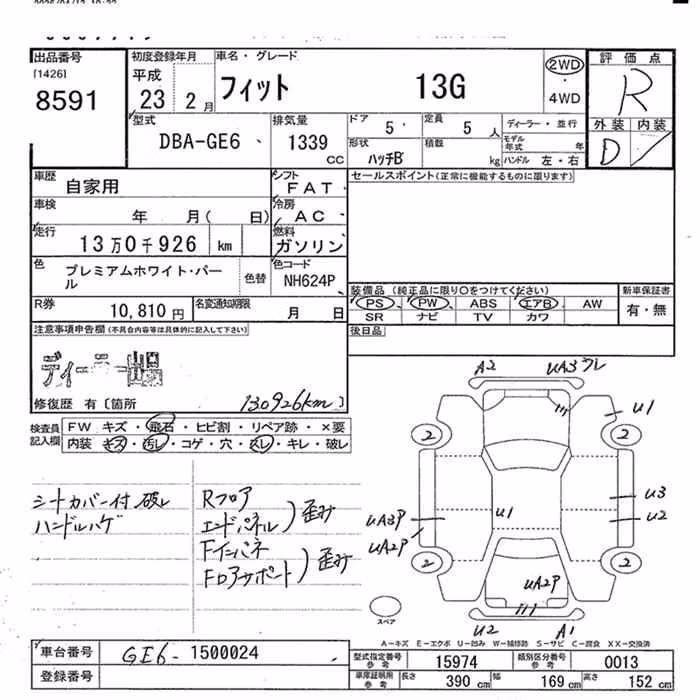 出品番号
[1426]
8591
初度登録年月
平成
23 2 月
車名・グレード
フィット 13G
2WD
4WD
評価点
R
外装 内装
D
型式
DBA-GE6
排気量
1339
CC
ドア
5
定員
5 人
形状
ハッチB
積載
kg
ディーラー・並行
モデル年式 年
ハンドル 左・右
車歴
自家用
シフト
FAT
車検
年 月( 日)
冷房
AC
走行
13万0千926 km
燃料
ガソリン
色
プレミアムホワイト・パール
色替
色コード
NH624P
R券
10,810円
名変通知期限
月 日
セールスポイント(正常に機能するものに限ります)
装備品 (純正品に限り○をつけてください)
PS PW ABS エアB AW
SR ナビ TV カワ
新車保証書
有・無
後日品
注意事項申告欄(不具合内容等は具体的に記入して下さい)
ディーラー出品
修復歴 有〔箇所 130926km〕
検査員記入欄
FW キズ・飛石・ヒビ割・リペア跡・×要
内装 キズ・汚レ・コゲ・穴・スレ・キレ・破レ
シートカバー付 破レ
ハンドルハゲ
Rフロア
エンドパネル) 歪み
Fインパネ
Fロアサポート) 歪み
A2
UA3フレ
U1
2
2
U3
U2
U1
UA3P
UA2P
2
2
UA2P
U2
A1
スペア
A-キズ E-エクボ U-凹み W-補修跡 S-サビ C-腐食 XX-交換済
車台番号
GE6-1500024
登録番号
型式指定番号 参考
15974
類別区分番号 参考
0013
車庫証明用 参考
長さ 390 cm
幅 169 cm
高さ 152 cm